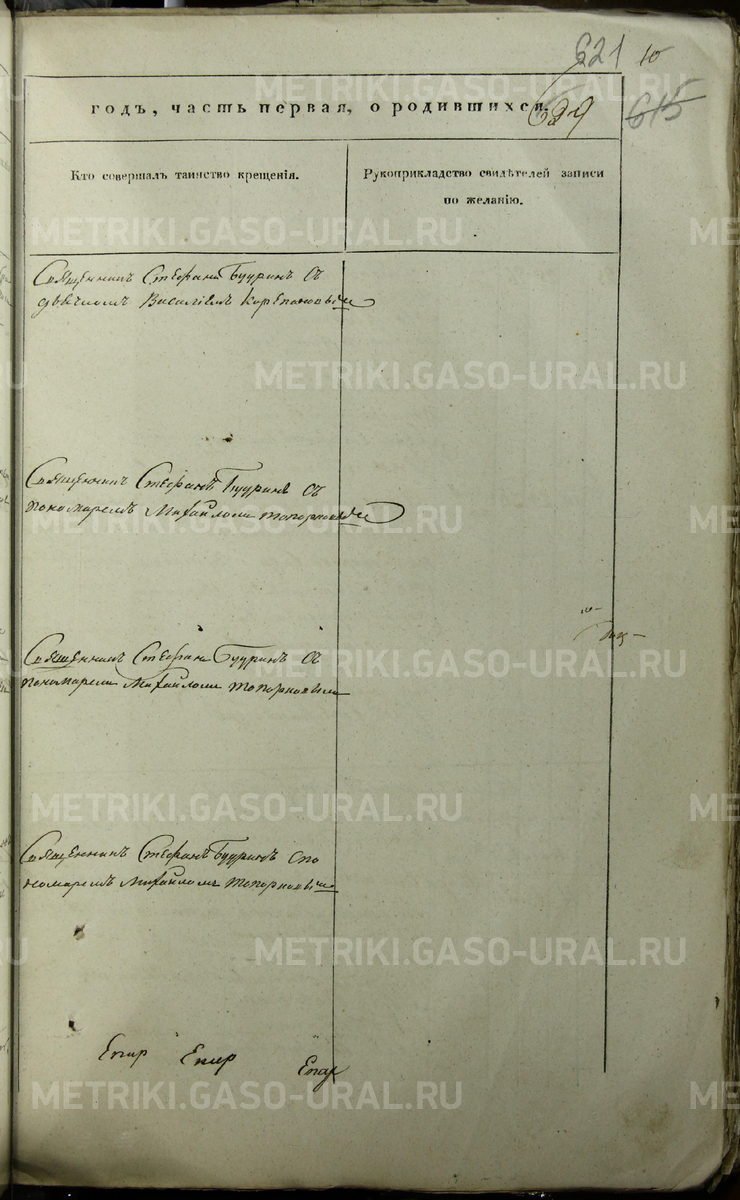 621 10
METRIKI.GASO-URAL.RU
годъ, часть первая, о родившихся.
615
Кто совершалъ таинство крещенія.
Рукоприкладство свидѣтелей записи
по желанію.
METRIKI.GASO-URAL.RU
Священникъ Стефанъ Бууринъ съ
дьячкомъ Василіемъ Корепановымъ
METRIKI.GASO-URAL.RU
Священникъ Стефанъ Бууринъ съ
пономаремъ Михайломъ Топорковымъ
METRIKI.GASO-URAL.RU
Священникъ Стефанъ Бууринъ съ
METRIKI.GASO-URAL.RU
пономаремъ Михайломъ Топорковымъ
METRIKI.GASO-URAL.RU
Священникъ Стефанъ Бууринъ с по
номаремъ Михайломъ Топорковымъ
METRIKI.GASO-URAL.RU
METRIKI.GASO-URAL.RU